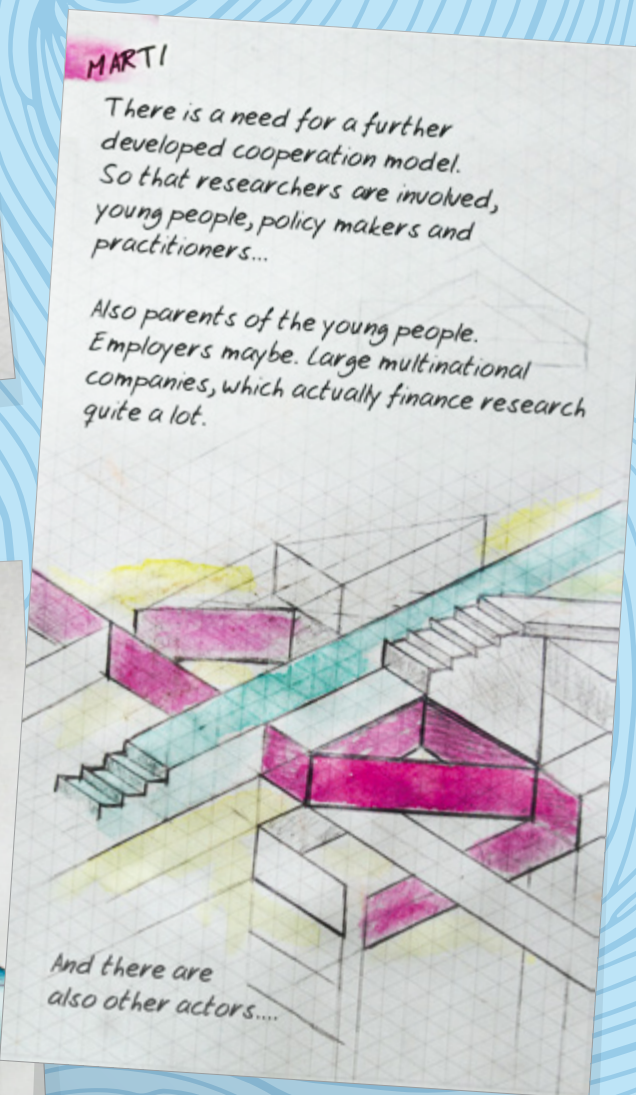 MARTI
There is a need for a further
developed cooperation model.
So that researchers are involved,
young people, policy makers and
practitioners...
Also parents of the young people.
Employers maybe. Large multinational
companies, which actually finance research
quite a lot.
And there are
also other actors....